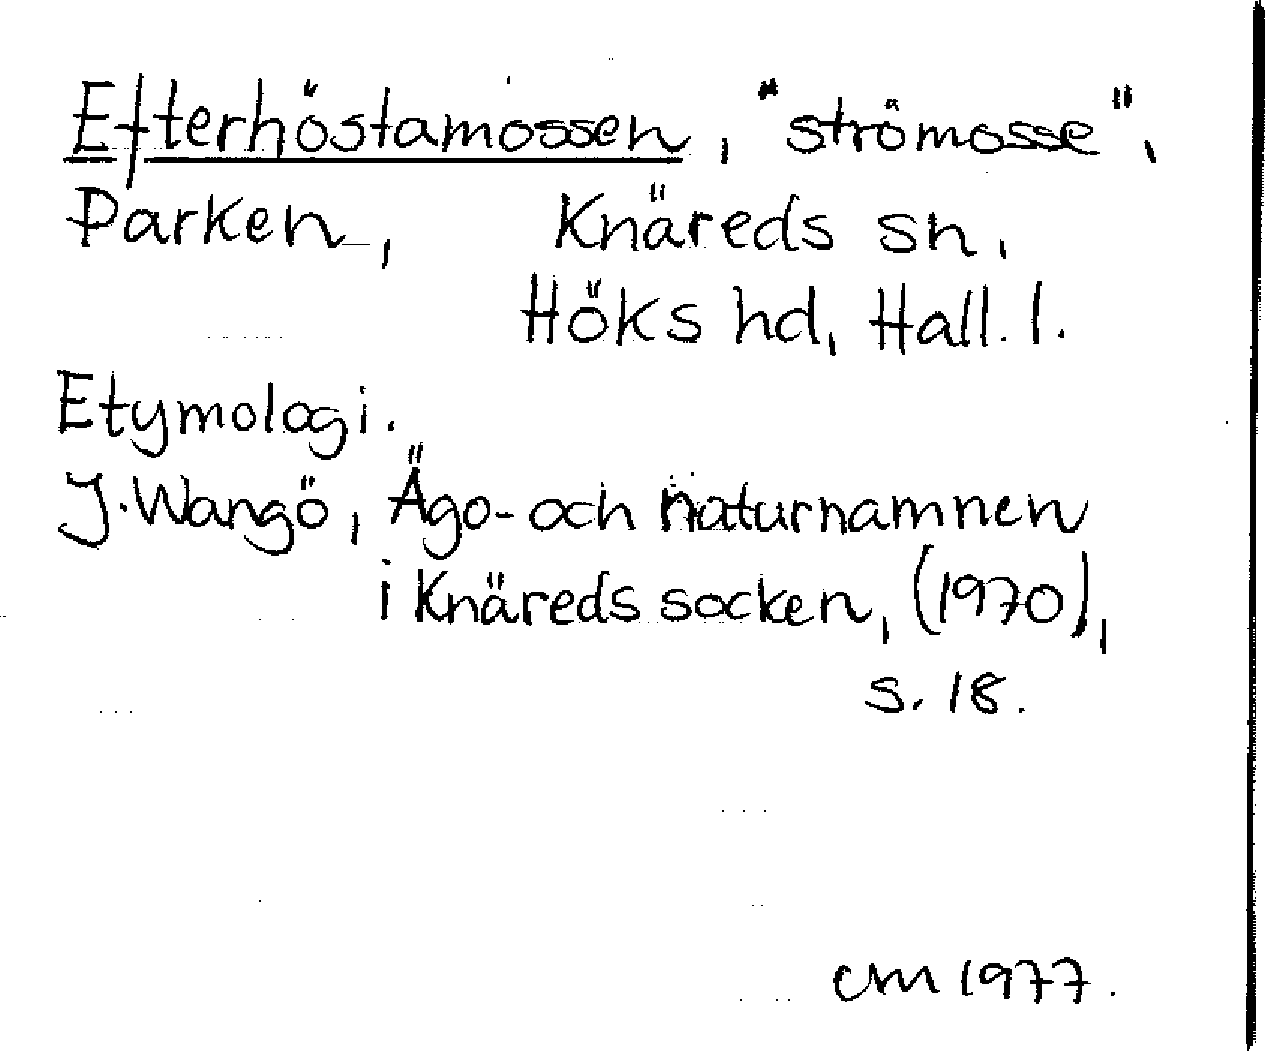 Efterhöstamossen, "strömosse",
Parken, Knäreds sn,
Höks hd, Hall. l.
Etymologi.
J. Wangö, Ägo- och naturnamnen
i Knäreds socken, (1970),
s. 18.
CM 1977.